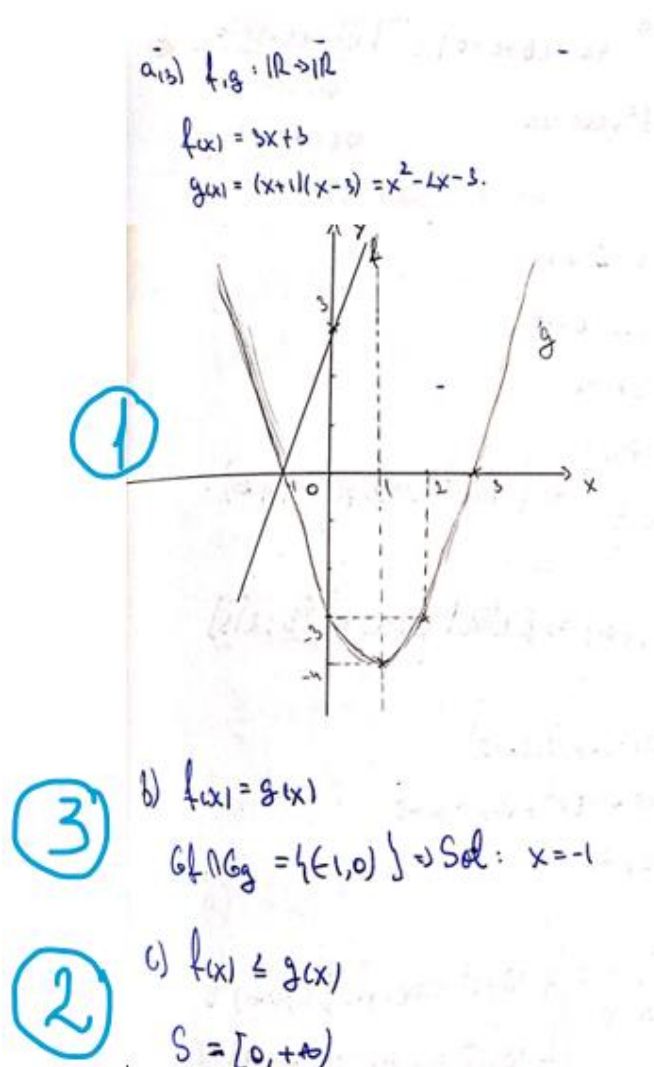 a,b) f,g : ℝ→ℝ
f(x) = 3x+3
g(x) = (x+1)(x-3) = x²-2x-3.
y
f
3
g
1
-1 0 1 2 3 x
-3
-4
3
b) f(x) = g(x)
Gf∩Gg = {(-1,0)} ⇒ Sol: x=-1
2
c) f(x) ≤ g(x)
S = [0,+∞)